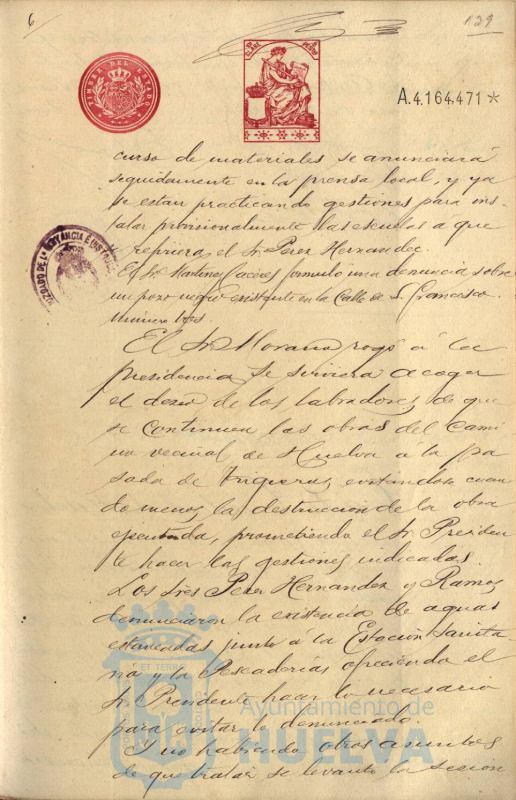 6
129
TIMBRE DEL ESTADO
A.4.164.471*
curso de materiales se anunciará
seguidamente en la prensa local, y ya
se estan practicando gestiones para ins-
talar provisionalmente las escuelas á que
se refiriera el Sr. Perez Hernandez.
El Sr. Martinez Caceres formuló una denuncia sobre
un pozo negro existente en la Calle de S. Francisco
número tres.
El Sr. Morano rogó á la
presidencia se sirviera acoger
el deseo de los labradores de que
se continuen las obras del Cami
no vecinal de Huelva á la pa
sada de Trigueros evitandose cuan
do menos la destruccion de la obra
ejecutada, prometiendo el Sr. Presiden
te hacer las gestiones indicadas.
Los Sres Perez Hernandez y Ramos
denunciaron la existencia de aguas
estancadas junto a la Estación Sanita
ria y la Pescaderías ofreciendo el
Sr. Presidente hacer lo necesario
para evitar lo denunciado.
Y no habiendo otros asuntos
de que tratar se levantó la sesión
Ayuntamiento de
HUELVA